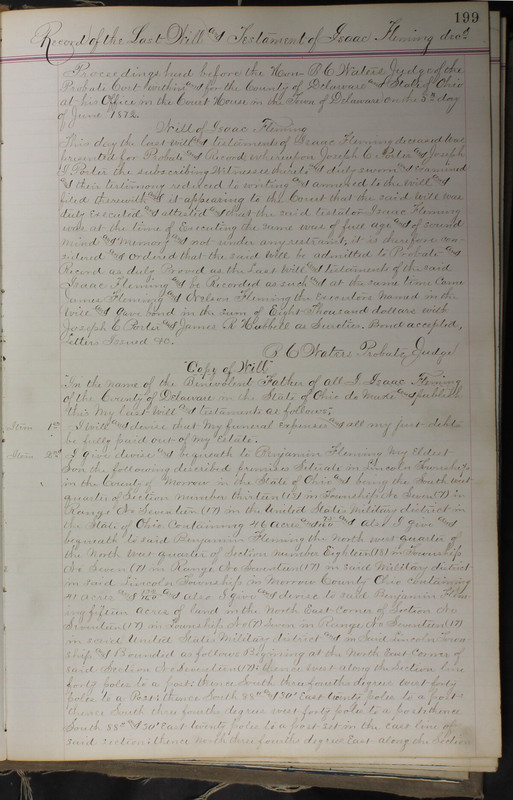 199
Record of the Last Will and Testament of Isaac Fleming dec'd
Proceedings had before the Hon. B C Waters Judge of the
Probate Cort within and for the County of Delaware and State of Ohio
at his Office in the Court House in the Town of Delaware on the 5th day
of June 1872.
Will of Isaac Fleming
This day the last will and testament of Isaac Fleming deceased was
presented for Probate and Record, whereupon Joseph C. Porter and Joseph
Porter the subscribing Witnesses thereto and duly sworn and examined
and their testimony reduced to writing and annexed to the will and
filed therewith and it appearing to the Court that the said Will was
duly Executed and attested and that the said testator Isaac Fleming
was, at the time of Executing the same was of full age and of sound
mind and Memory and not under any restraint, it is therefore con-
sidered and Ordered that the said Will be admitted to Probate and
Record as duly Proved as the Last Will and testament of the said
Isaac Fleming and be Recorded as such and at the same time Came
James Fleming and Nelson Fleming the Executors Named in the
Will and gave bond in the sum of Eight Thousand dollars with
Joseph C Porter and James R Hubbell as Sureties. Bond accepted,
Letters Issued &c.
B C Waters Probate Judge
"Copy of Will"
"In the name of the Benevolent Father of all I, Isaac Fleming
of the County of Delaware in the State of Ohio do Make and publish
this My Last Will and testament as follows;
Item 1st I Will and devise that My funeral expenses and all my just debts
be fully paid out of My Estate.
Item 2nd I give devise and bequeath to Benjamin Fleming My Eldest
Son the following described premises Situate in Lincoln Township
in the County of Morrow in the State of Ohio and being the South west
quarter of Section number thirteen (13) in Township No Seven (7) in
Range No Seventeen (17) in the United States Military district in
the State of Ohio Containing 46 acres and also I give and
bequeath to said Benjamin Fleming the North West quarter of
the North West quarter of Section number Eighteen (18) in Township
No Seven (7) in Range No Seventeen (17) in said Military district
in said Lincoln Township in Morrow County Ohio Containing
41 acres and also I give and devise to said Benjamin Flem-
ing fifteen acres of land in the North East Corner of Section No
Seventeen (17) in Township No (7) Seven in Range No Seventeen (17)
in said United States Military district and in Said Lincoln Town-
ship and Bounded as follows Beginning at the North East Corner of
said Section No Seventeen (17); thence west along the Section line
forty poles to a post; thence South three fourths degrees west forty
poles to a Post; thence South 88° and 30' East twenty poles to a post
thence South three fourths degrees west forty poles to a post; thence
South 88° and 30' East twenty poles to a post set in the East line of
said section; thence North three fourths degrees East along the Section